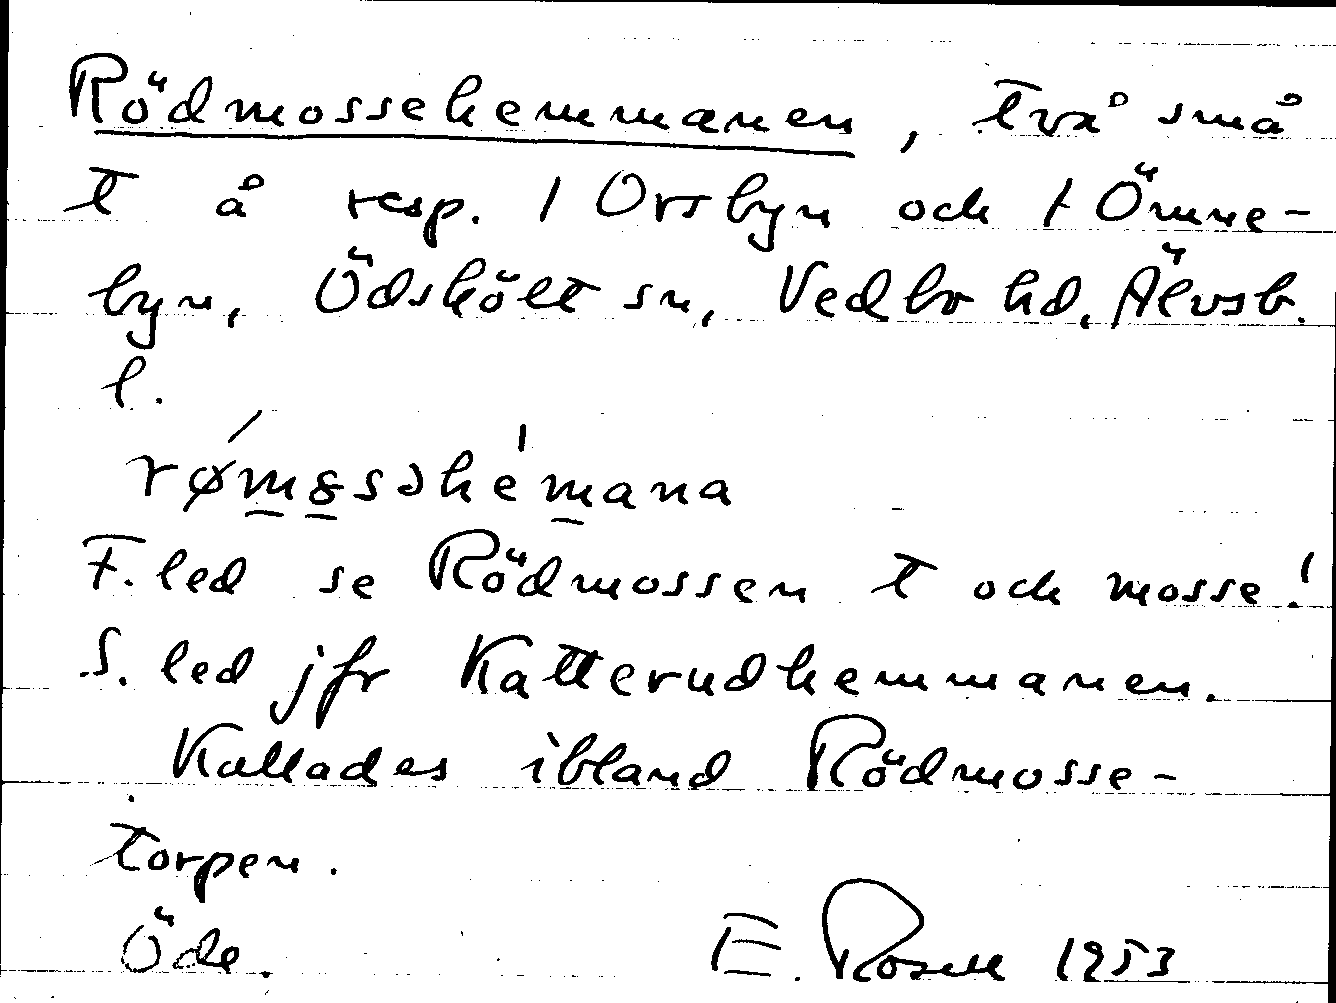 Rödmossehemmanen, två små
t å resp. 1 Orsbyn och 1 Ömme-
byn, Ödskölt sn, Vedbo hd, Älvsb.
l.
F. led se Rödmossen t och mosse!
S. led jfr Katterudhemmanen.
Kallades ibland Rödmosse-
torpen.
Öde. E. Rosell 1953